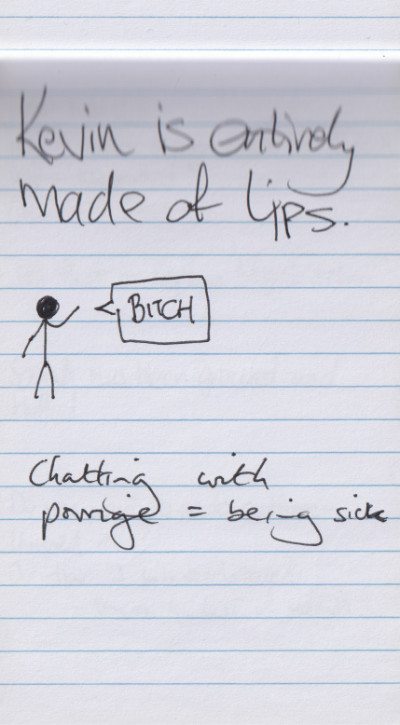 Kevin is entirely
made of lips.
BITCH
Chatting with
porrige = being sick